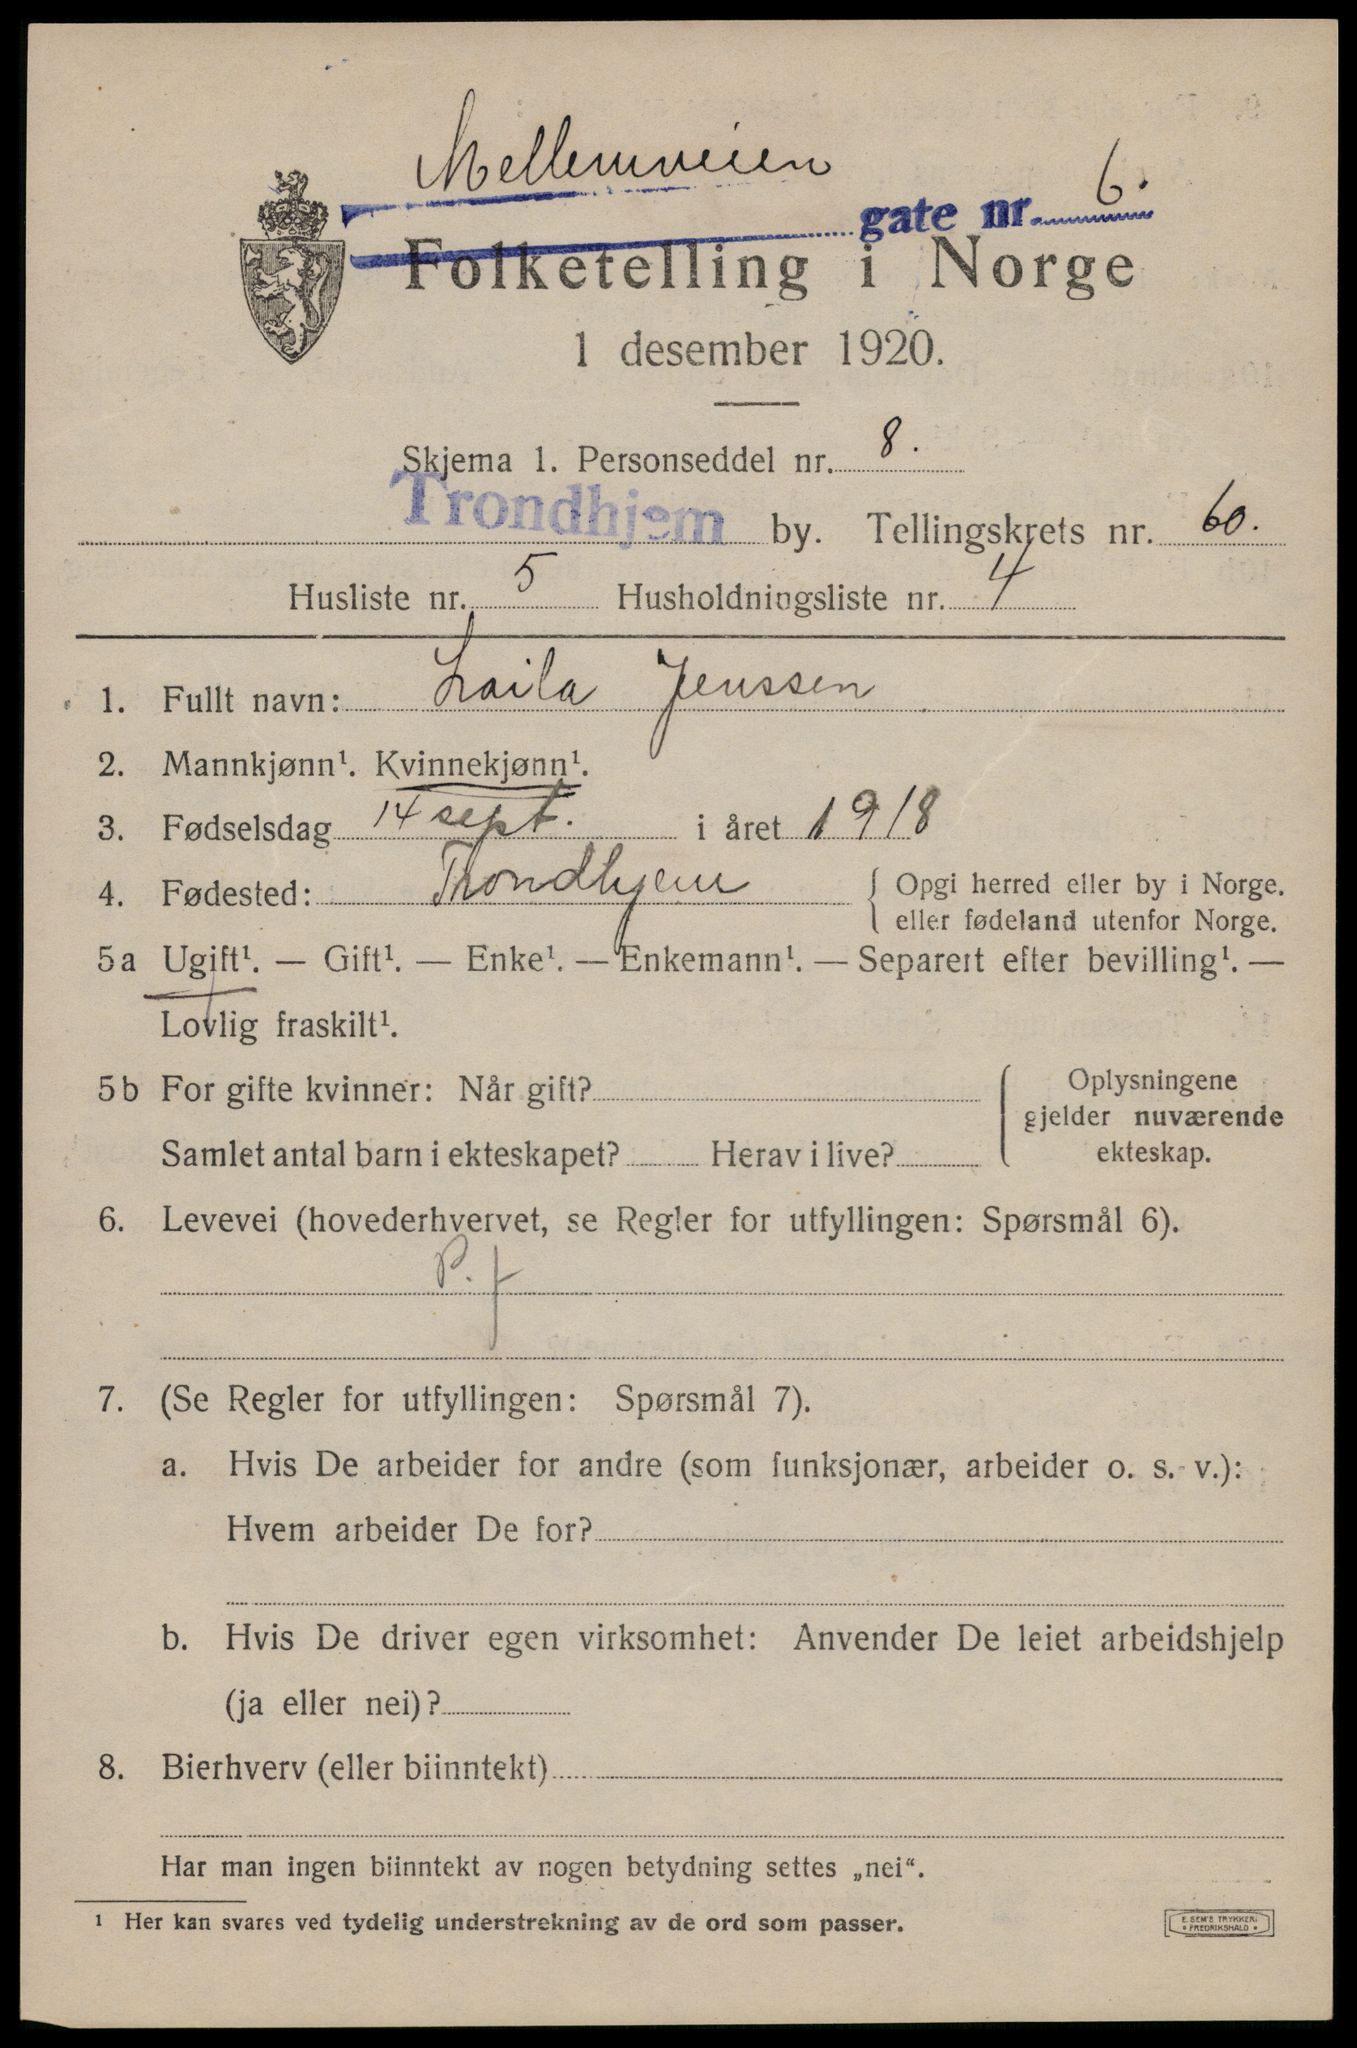 Mellemveien
gate nr. 6.
Folketelling i Norge
1 desember 1920.
Skjema 1. Personseddel nr. 8.
Trondhjem by. Tellingskrets nr. 60.
Husliste nr. 5 Husholdningsliste nr. 4
1. Fullt navn: Laila Jenssen
2. Mannkjønn¹. Kvinnekjønn¹.
3. Fødselsdag 14 sept. i året 1918
4. Fødested: Trondhjem { Opgi herred eller by i Norge.
eller fødeland utenfor Norge.
5a Ugift¹. — Gift¹. — Enke¹. — Enkemann¹. — Separert efter bevilling¹. —
Lovlig fraskilt¹.
5b For gifte kvinner: Når gift?
Samlet antal barn i ekteskapet? Herav i live?
Oplysningene
gjelder nuværende
ekteskap.
6. Levevei (hovederhvervet, se Regler for utfyllingen: Spørsmål 6).
P. f
7. (Se Regler for utfyllingen: Spørsmål 7).
a. Hvis De arbeider for andre (som funksjonær, arbeider o. s. v.):
Hvem arbeider De for?
b. Hvis De driver egen virksomhet: Anvender De leiet arbeidshjelp
(ja eller nei)?
8. Bierhverv (eller biinntekt)
Har man ingen biinntekt av nogen betydning settes „nei“.
¹ Her kan svares ved tydelig understrekning av de ord som passer.
E. SEM'S TRYKKERI
• FREDRIKSHALD •